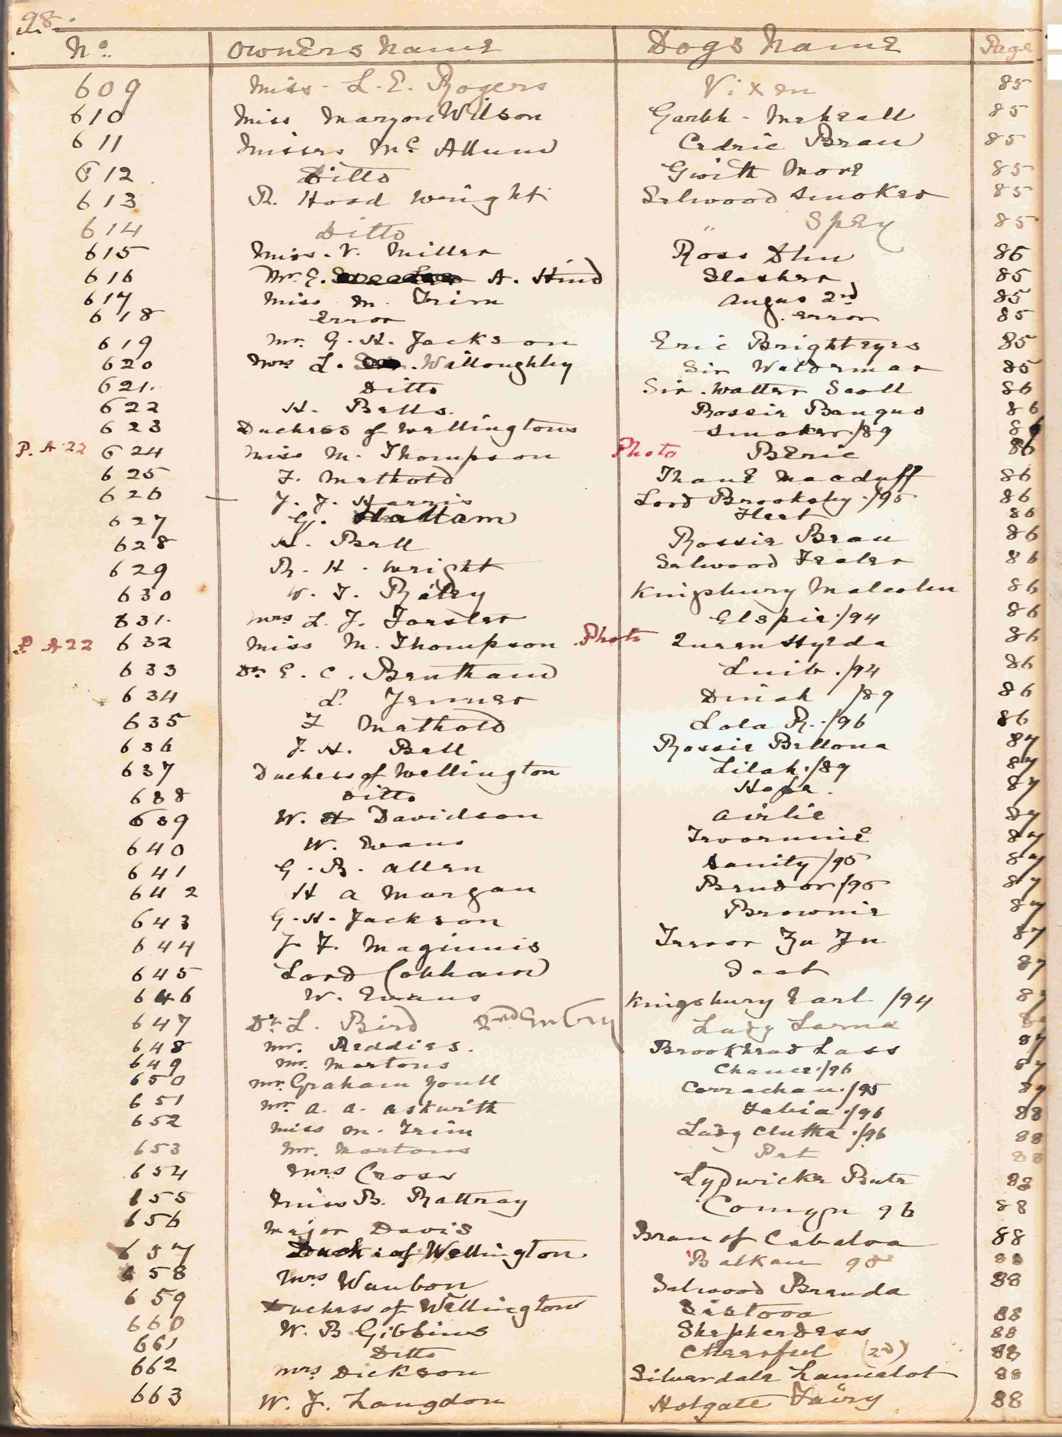 98.
No. Owners Name Dogs Name Page
609 Miss. L. E. Rogers Vixen 85
610 Miss Margon Wilson Garbh - 85
611 Misses Mc Allum Cedric Bran 85
612 Ditto Gwith More 85
613 R. Hood Wright Selwood Smoker 85
614 Ditto " Spey 85
615 Miss. V. Miller Ross Dhu 85
616 Mr. E. A. Hind Slasher 85
617 Miss M. Trim Angus 2nd 85
618 Error Error 85
619 Mr. G. H. Jackson Eric Brighteyes 85
620 Mrs L. Willoughby Sir Waldemar 85
621. Ditto Sir Walter Scott 86
622 H. Bells. Rossie Bangus 86
623 Duchess of Wellingtons Smoker /89 86
P. A 22 624 Miss M. Thompson Photo Beric 86
625 F. Methold Thane Macduff 86
626 J. J. Harris Lord Brooksby /95 86
627 G. Hallam Fleet 86
628 H. Bell Rossie Bran 86
629 R. H. Wright Selwood 86
630 W. F. Kingsbury Malcolm 86
631. Mrs L. J. Forster Elspie /94 86
P. A 22 632 Miss M. Thompson Photo Queen Hylda 86
633 Dr E. C. Bentham Luib. /94 86
634 L. Jenner Dinah /89 86
635 F Methold Lola R. /96 86
636 J. H. Bell Rossie Bellona 87
637 Duchess of Wellington Lilah /89 87
638 Ditto Hope. 87
639 W. H Davidson Airlie 87
640 W. Evans 87
641 G. R. Allen Sanity /95 87
642 H A Morgan Bendor /95 87
643 G. H. Jackson Brownie 87
644 J F. Maginnis Terror Zu Zu 87
645 Lord Cobham 87
646 W. Evans Kingsbury Earl /94 87
647 Dr L. Bird 2nd Entry Lady Lorna
648 Mr. Reddies. Lass 87
649 Mr. Mortons Chance /96 87
650 Mr. Graham Youll Corrachan /95 87
651 Mr. A. A. Askwith Fabia /96 88
652 Miss M. Trim Lady Clutha /96 88
653 Mr. Mortons Pet 88
654 Mrs Cross Lydwicke Bute 88
655 Miss B. Rattray Comyn 96 88
656 Major Davis Bran of Cabaloa 88
657 Duchess of Wellington Balkan 98 88
658 Mrs Wanbon Selwood Brenda 88
659 Duchess of Wellingtons Sistova 88
660 W. B. Gibbins Shepherdess 88
661 Ditto Cheerful (2d) 88
662 Mrs Dickson Silverdale Lancelot 88
663 W. J. Langdon Holgate Fairy 88